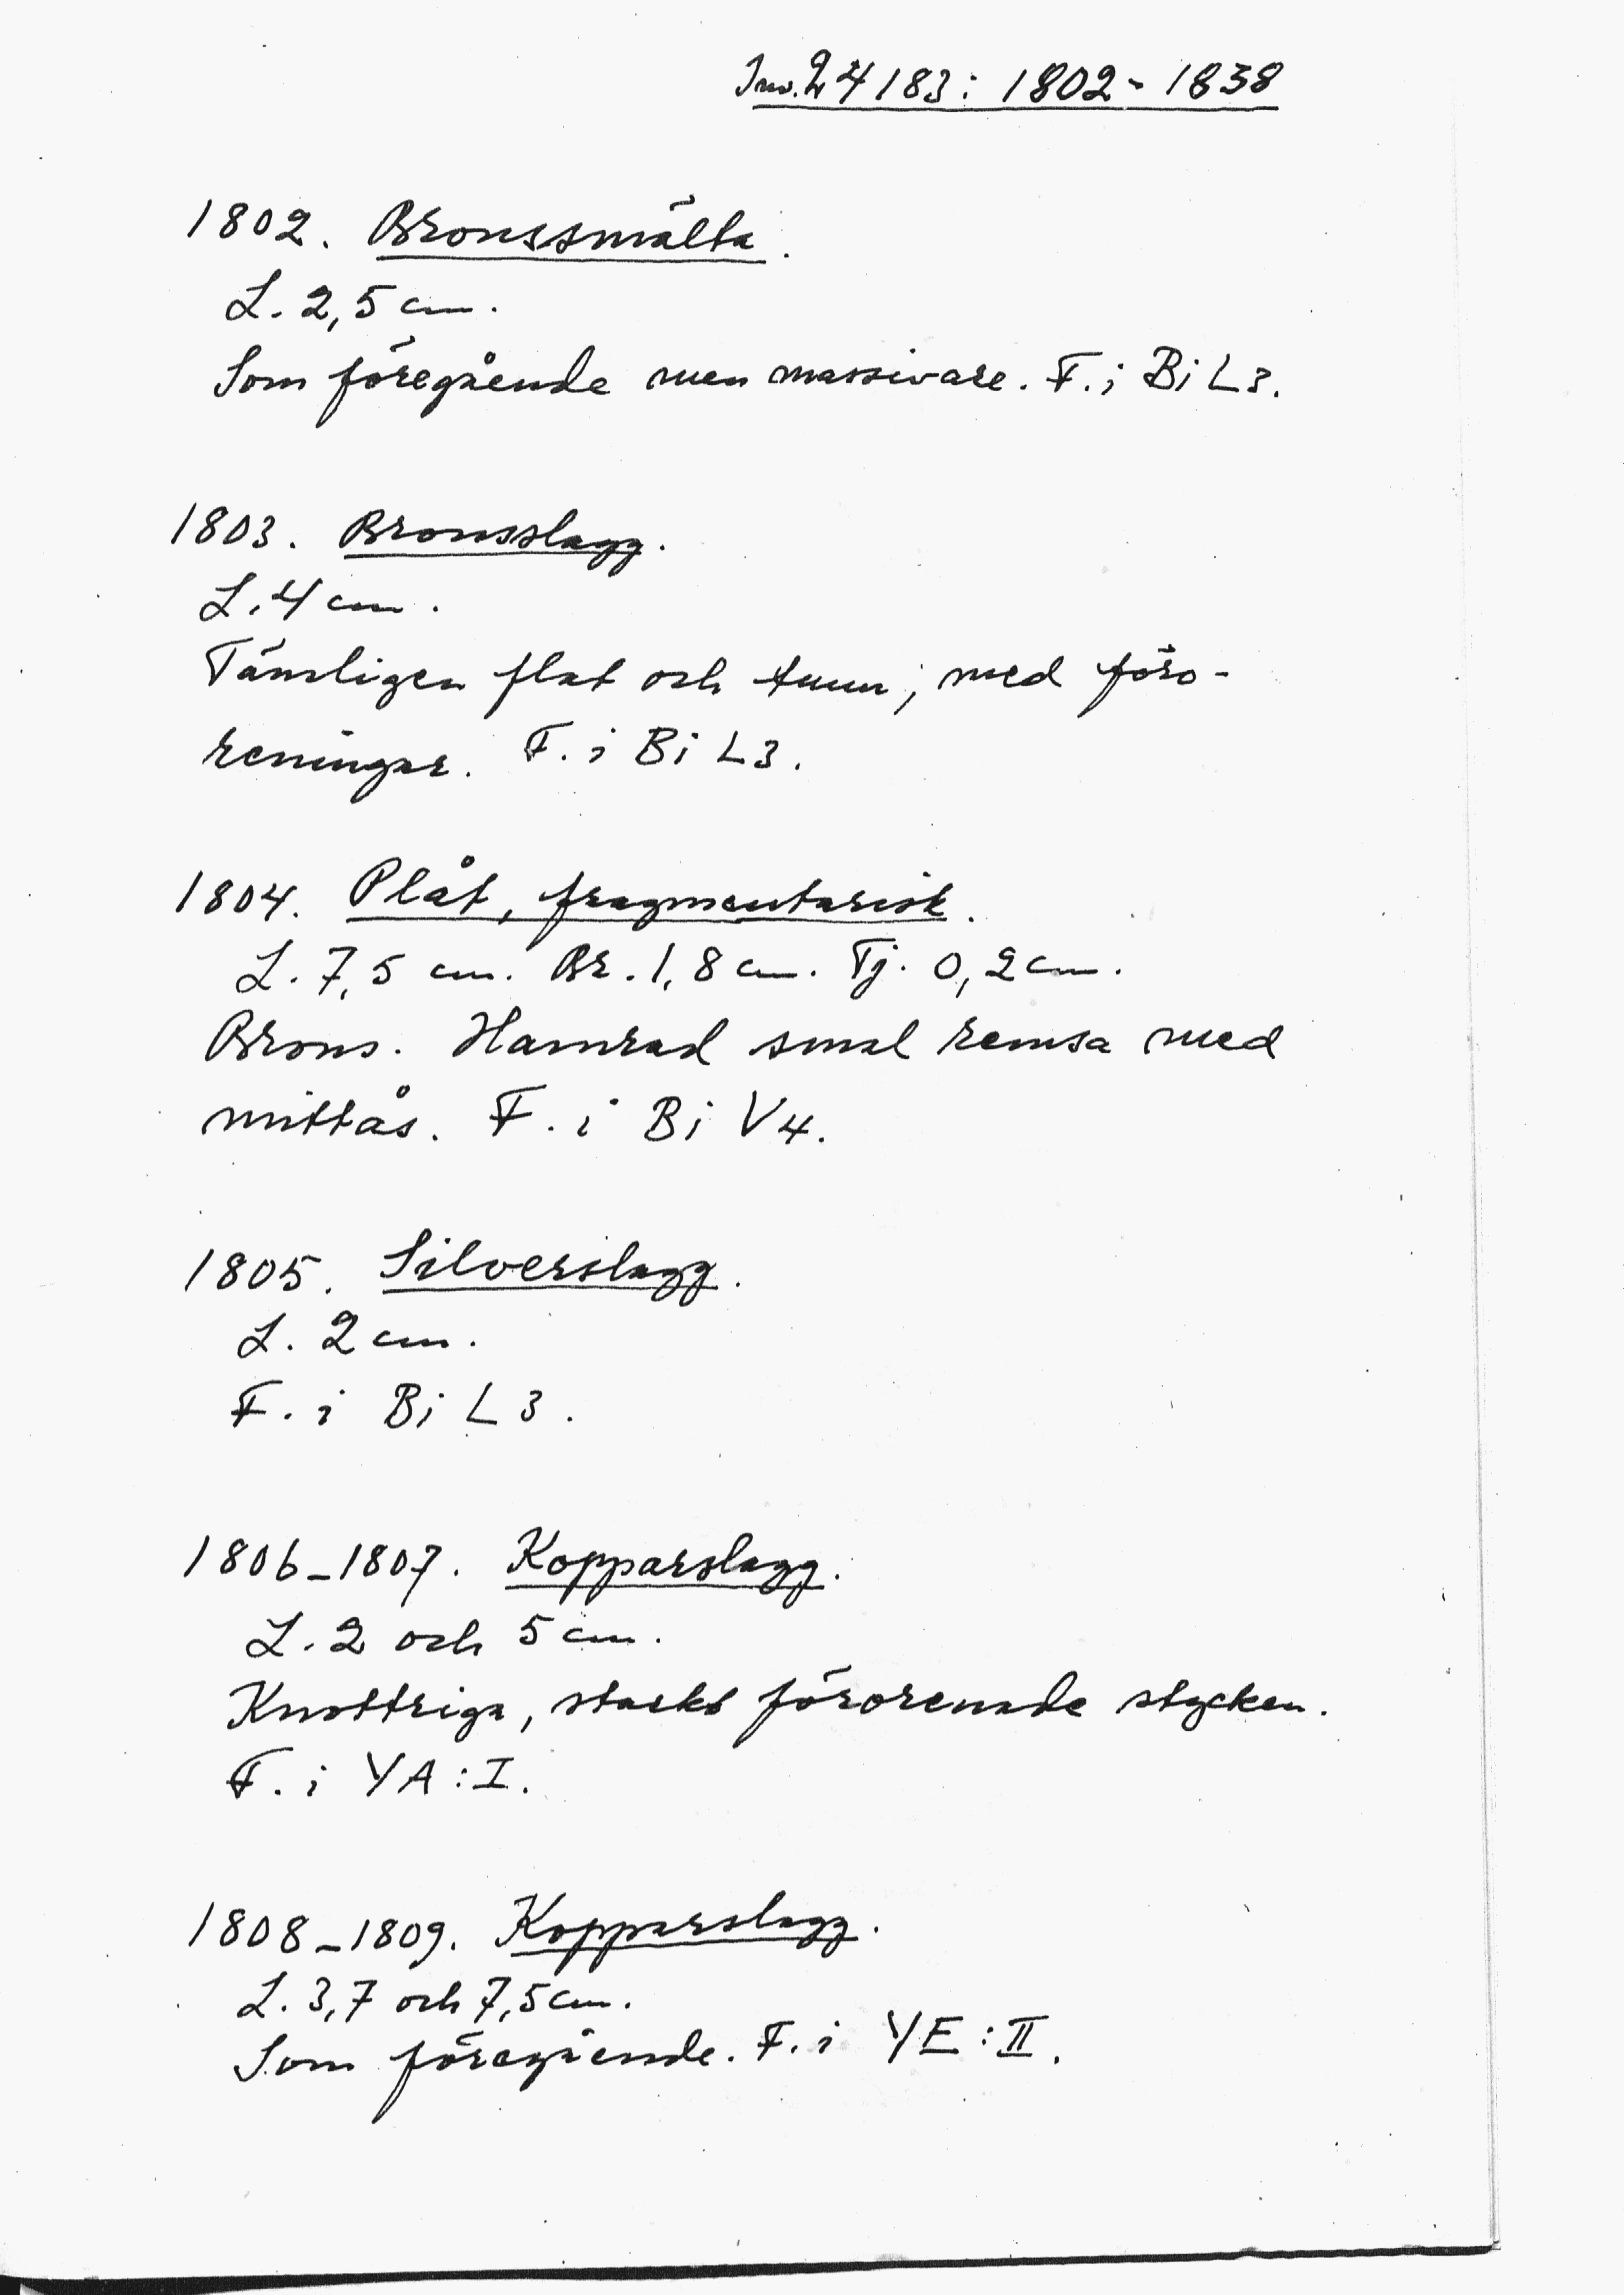 Inv. 24183: 1802-1838
1802. Bronssmälta.
L. 2,5 cm.
Som föregående men massivare. F. i Bi L3.
1803. Bronsslagg.
L. 4 cm.
Tämligen flat och tunn; med föro-
reningar. F. i Bi L3.
1804. Plåt, fragmentarisk.
L. 7,5 cm. Br. 1,8 cm. Tj. 0,2 cm.
Brons. Hamrad smal remsa med
mittås. F. i Bi V4.
1805. Silverslagg.
L. 2 cm.
F. i Bi L3.
1806-1807. Kopparslagg.
L. 2 och 5 cm.
Knottriga, starkt förorenade stycken.
F. i YA:I.
1808-1809. Kopparslagg.
L. 3,7 och 7,5 cm.
Som föregående. F. i YE:II.